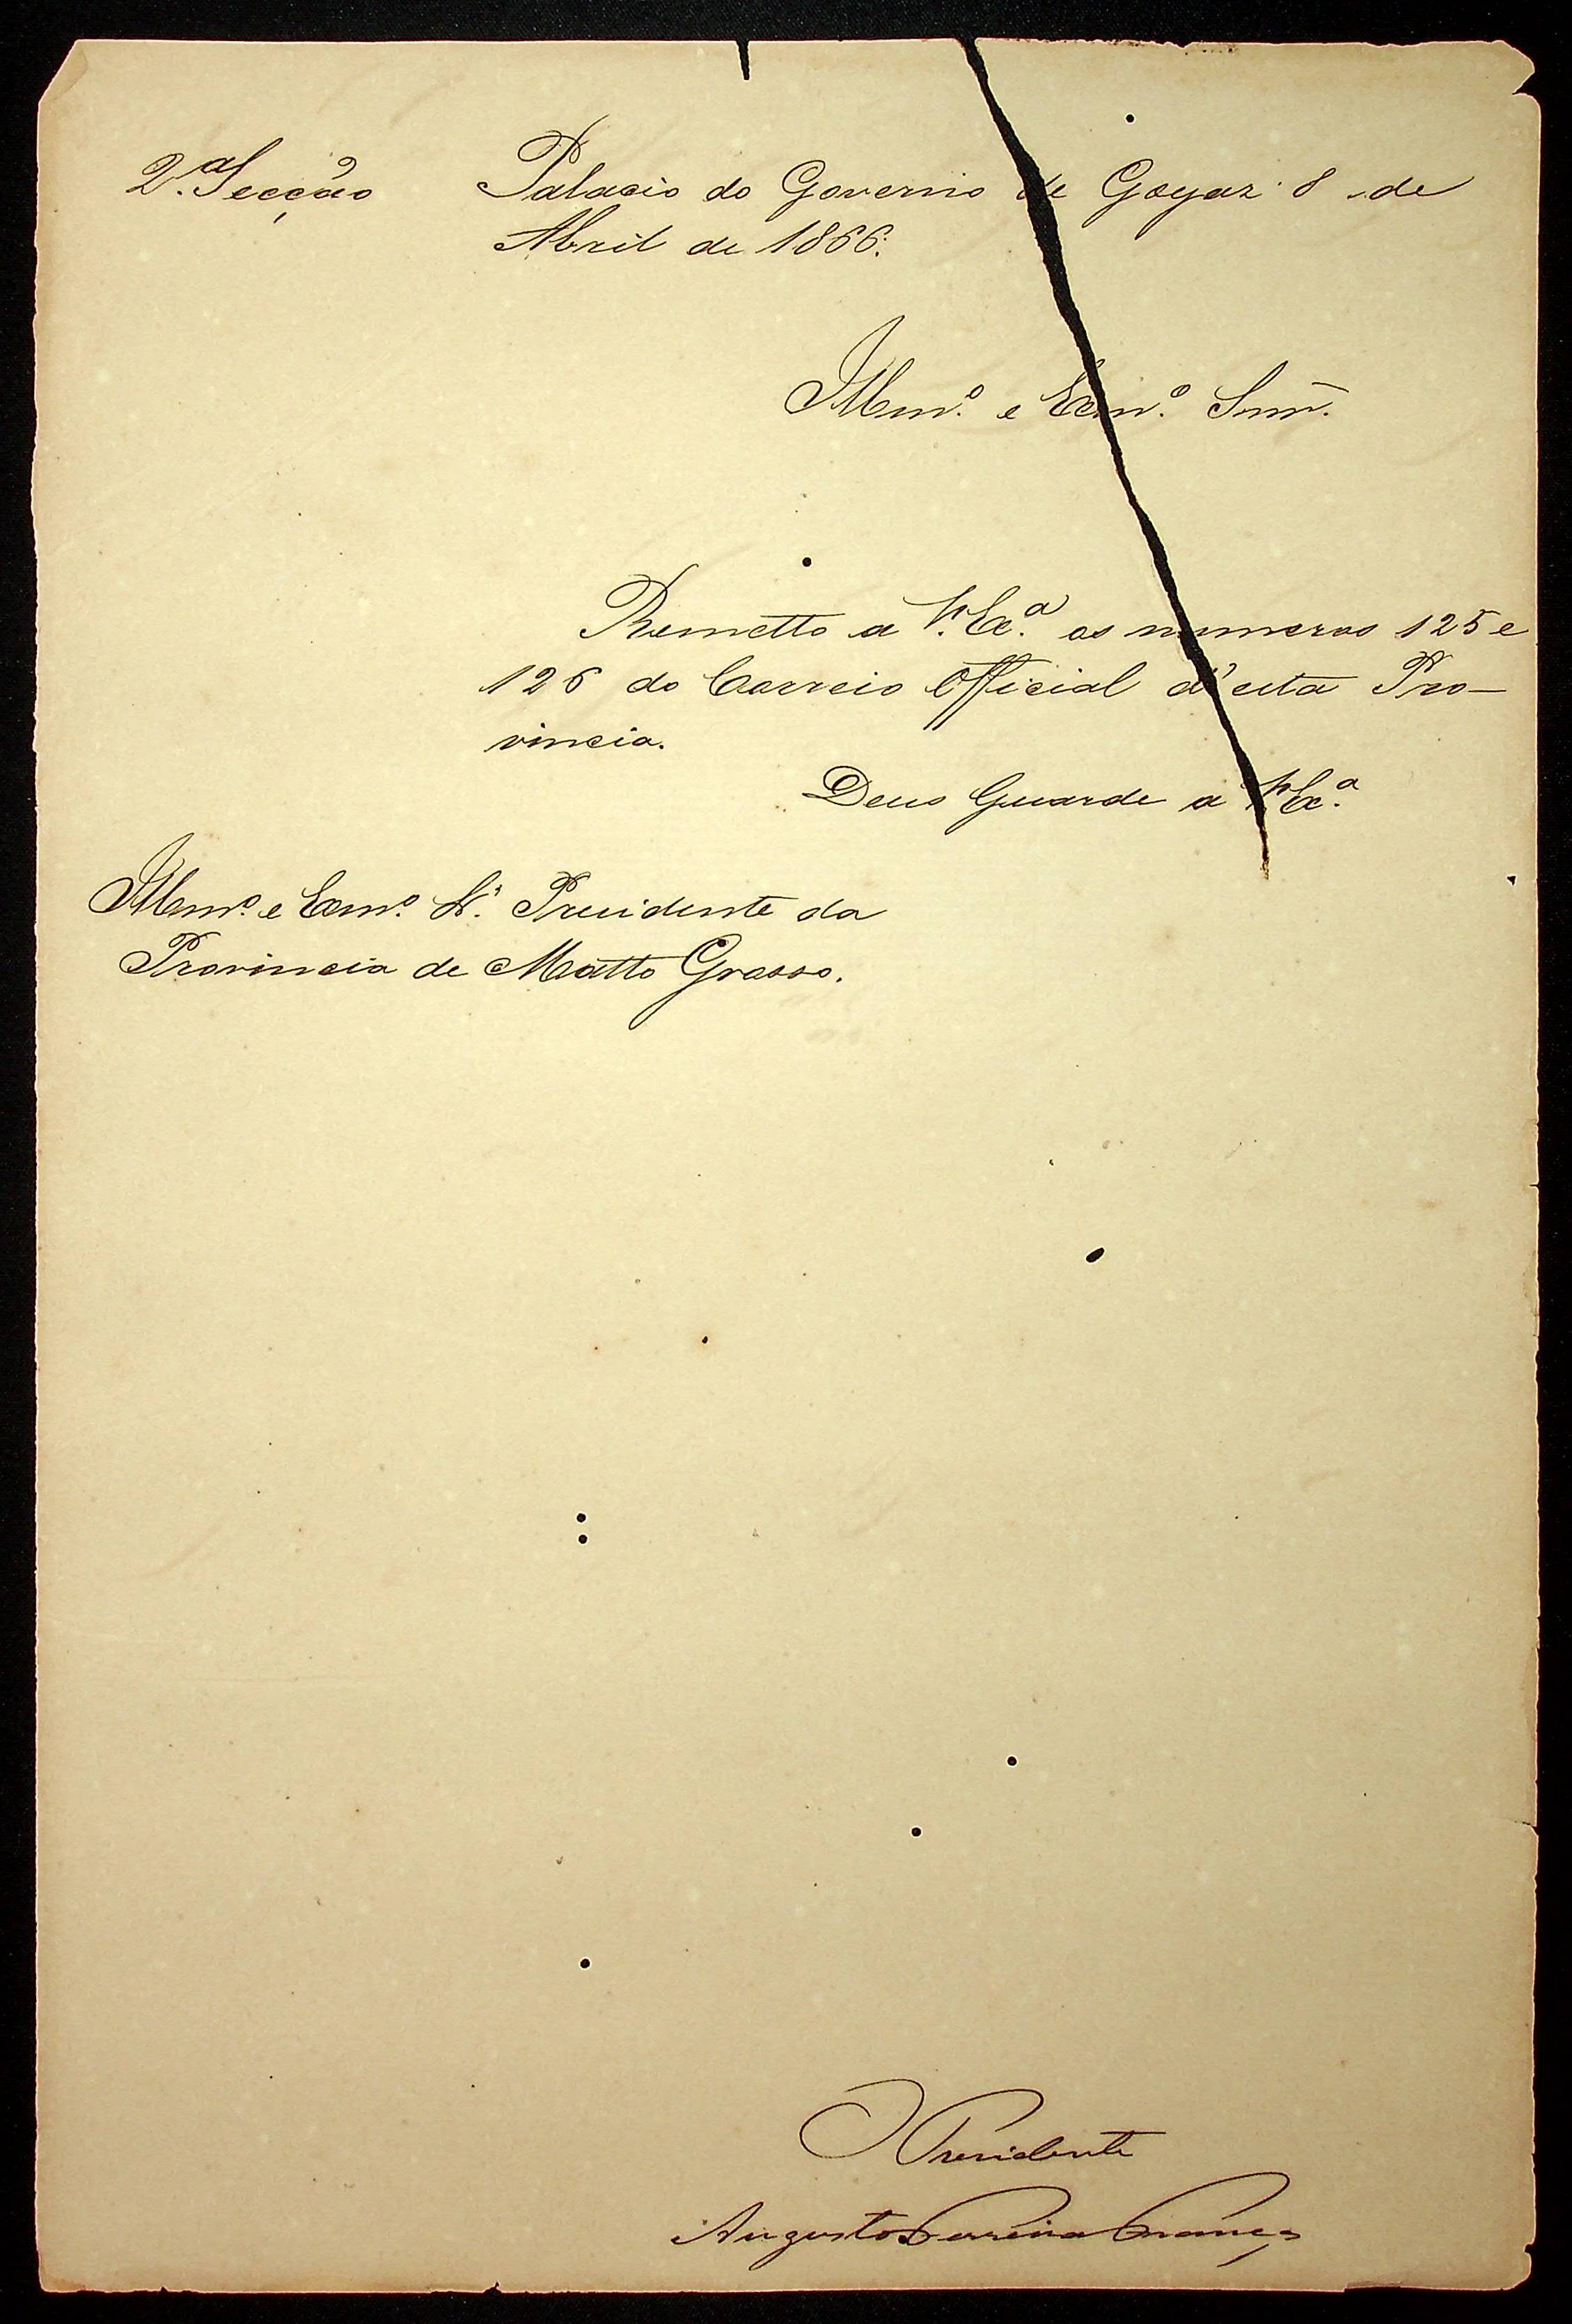 2.ª Secção Palacio do Governo de Goyaz 8 de
Abril de 1866.
Illmº. e Exmº. Snnr.
Remetto a V. Exª. os numeros 125 e
126 do Correio Official d'esta Pro-
vincia.
Deus Guarde a V. Exª.
Illmº. e Exmº. Sr. Presidente da
Provincia de Matto Grosso.
O Presidente
Augusto Ferreira França